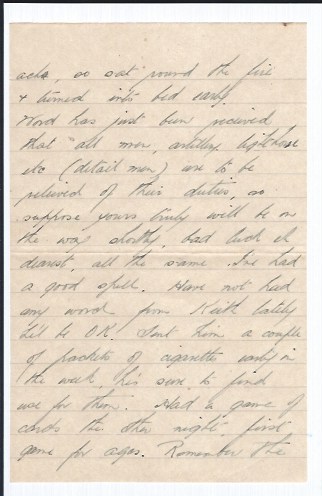 acks, so sat round the fire
& turned into bed early.
Word has just been received
that "all men, artillery, light horse
etc (detail men) are to be
relieved of their duties, so
suppose yours truly will be on
the way shortly, bad luck eh
dearest, all the same I've had
a good spell. Have not had
any word from Keith lately
he'll be OK. Sent him a couple
of packets of cigarettes early in
the week, he's sure to find
use for them. Had a game of
cards the other night, first
game for ages. Remember the